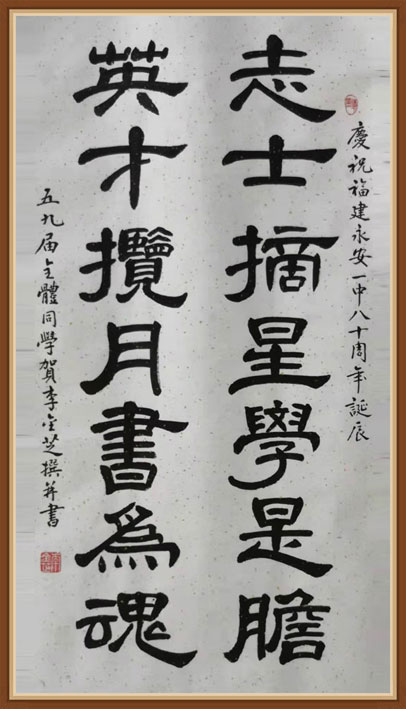 慶祝福建永安一中八十周年誕辰
志士摘星學是膽
英才攬月書為魂
五九届全體同學賀李金芝撰并書